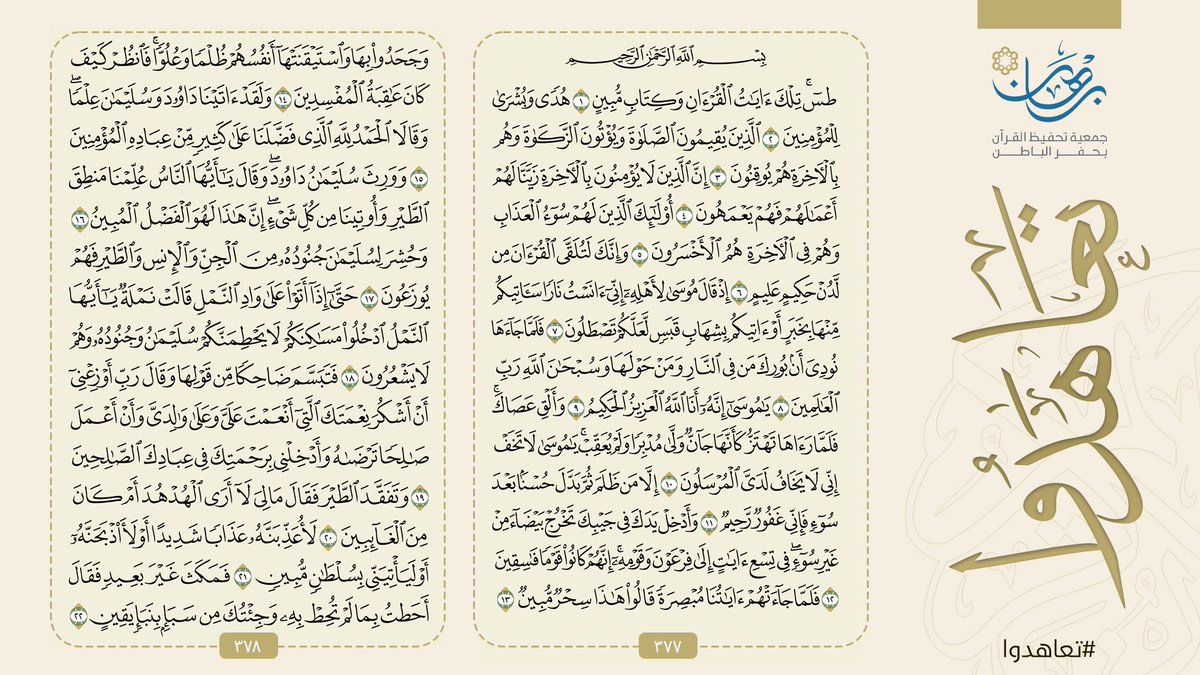 برهان
جمعية تحفيظ القرآن
بحفر الباطن
تعاهدوا
#تعاهدوا
بِسْمِ اللَّهِ الرَّحْمَٰنِ الرَّحِيمِ
طسٓۚ تِلْكَ ءَايَاتُ الْقُرْءَانِ وَكِتَابٍ مُّبِينٍ ١ هُدًى وَبُشْرَىٰ
لِلْمُؤْمِنِينَ ٢ الَّذِينَ يُقِيمُونَ الصَّلَوٰةَ وَيُؤْتُونَ الزَّكَوٰةَ وَهُم
بِالْأَخِرَةِ هُمْ يُوقِنُونَ ٣ إِنَّ الَّذِينَ لَا يُؤْمِنُونَ بِالْأَخِرَةِ زَيَّنَّا لَهُمْ
أَعْمَٰلَهُمْ فَهُمْ يَعْمَهُونَ ٤ أُوْلَٰٓئِكَ الَّذِينَ لَهُمْ سُوٓءُ الْعَذَابِ
وَهُمْ فِي الْأَخِرَةِ هُمُ الْأَخْسَرُونَ ٥ وَإِنَّكَ لَتُلَقَّى الْقُرْءَانَ مِن
لَّدُنْ حَكِيمٍ عَلِيمٍ ٦ إِذْ قَالَ مُوسَىٰ لِأَهْلِهِۦٓ إِنِّيٓ ءَانَسْتُ نَارًا سَـَٔاتِيكُم
مِّنْهَا بِخَبَرٍ أَوْ ءَاتِيكُم بِشِهَابٍ قَبَسٍ لَّعَلَّكُمْ تَصْطَلُونَ ٧ فَلَمَّا جَآءَهَا
نُودِيَ أَنۢ بُورِكَ مَن فِي النَّارِ وَمَنْ حَوْلَهَا وَسُبْحَٰنَ اللَّهِ رَبِّ
الْعَٰلَمِينَ ٨ يَٰمُوسَىٰٓ إِنَّهُۥٓ أَنَا اللَّهُ الْعَزِيزُ الْحَكِيمُ ٩ وَأَلْقِ عَصَاكَۚ
فَلَمَّا رَءَاهَا تَهْتَزُّ كَأَنَّهَا جَآنٌّ وَلَّىٰ مُدْبِرًا وَلَمْ يُعَقِّبْۚ يَٰمُوسَىٰ لَا تَخَفْ
إِنِّي لَا يَخَافُ لَدَيَّ الْمُرْسَلُونَ ١٠ إِلَّا مَن ظَلَمَ ثُمَّ بَدَّلَ حُسْنًۢا بَعْدَ
سُوٓءٍ فَإِنِّي غَفُورٌ رَّحِيمٌ ١١ وَأَدْخِلْ يَدَكَ فِي جَيْبِكَ تَخْرُجْ بَيْضَآءَ مِنْ
غَيْرِ سُوٓءٍۖ فِي تِسْعِ ءَايَٰتٍ إِلَىٰ فِرْعَوْنَ وَقَوْمِهِۦٓۚ إِنَّهُمْ كَانُواْ قَوْمًا فَٰسِقِينَ
١٢ فَلَمَّا جَآءَتْهُمْ ءَايَٰتُنَا مُبْصِرَةً قَالُواْ هَٰذَا سِحْرٌ مُّبِينٌ ١٣
٣٧٧
وَجَحَدُواْ بِهَا وَاسْتَيْقَنَتْهَآ أَنفُسُهُمْ ظُلْمًا وَعُلُوًّاۚ فَانظُرْ كَيْفَ
كَانَ عَٰقِبَةُ الْمُفْسِدِينَ ١٤ وَلَقَدْ ءَاتَيْنَا دَاوُۥدَ وَسُلَيْمَٰنَ عِلْمًاۖ
وَقَالَا الْحَمْدُ لِلَّهِ الَّذِي فَضَّلَنَا عَلَىٰ كَثِيرٍ مِّنْ عِبَادِهِ الْمُؤْمِنِينَ
١٥ وَوَرِثَ سُلَيْمَٰنُ دَاوُۥدَۖ وَقَالَ يَٰٓأَيُّهَا النَّاسُ عُلِّمْنَا مَنطِقَ
الطَّيْرِ وَأُوتِينَا مِن كُلِّ شَيْءٍۖ إِنَّ هَٰذَا لَهُوَ الْفَضْلُ الْمُبِينُ ١٦
وَحُشِرَ لِسُلَيْمَٰنَ جُنُودُهُۥ مِنَ الْجِنِّ وَالْإِنسِ وَالطَّيْرِ فَهُمْ
يُوزَعُونَ ١٧ حَتَّىٰٓ إِذَآ أَتَوْاْ عَلَىٰ وَادِ النَّمْلِ قَالَتْ نَمْلَةٌ يَٰٓأَيُّهَا
النَّمْلُ ادْخُلُواْ مَسَٰكِنَكُمْ لَا يَحْطِمَنَّكُمْ سُلَيْمَٰنُ وَجُنُودُهُۥ وَهُمْ
لَا يَشْعُرُونَ ١٨ فَتَبَسَّمَ ضَاحِكًا مِّن قَوْلِهَا وَقَالَ رَبِّ أَوْزِعْنِيٓ
أَنْ أَشْكُرَ نِعْمَتَكَ الَّتِيٓ أَنْعَمْتَ عَلَيَّ وَعَلَىٰ وَٰلِدَيَّ وَأَنْ أَعْمَلَ
صَٰلِحًا تَرْضَىٰهُ وَأَدْخِلْنِي بِرَحْمَتِكَ فِي عِبَادِكَ الصَّٰلِحِينَ
١٩ وَتَفَقَّدَ الطَّيْرَ فَقَالَ مَالِيَ لَآ أَرَى الْهُدْهُدَ أَمْ كَانَ
مِنَ الْغَآئِبِينَ ٢٠ لَأُعَذِّبَنَّهُۥ عَذَابًا شَدِيدًا أَوْ لَأَاْذْبَحَنَّهُۥٓ
أَوْ لَيَأْتِيَنِّي بِسُلْطَٰنٍ مُّبِينٍ ٢١ فَمَكَثَ غَيْرَ بَعِيدٍ فَقَالَ
أَحَطتُ بِمَا لَمْ تُحِطْ بِهِۦ وَجِئْتُكَ مِن سَبَإٍۭ بِنَبَإٍ يَقِينٍ ٢٢
٣٧٨